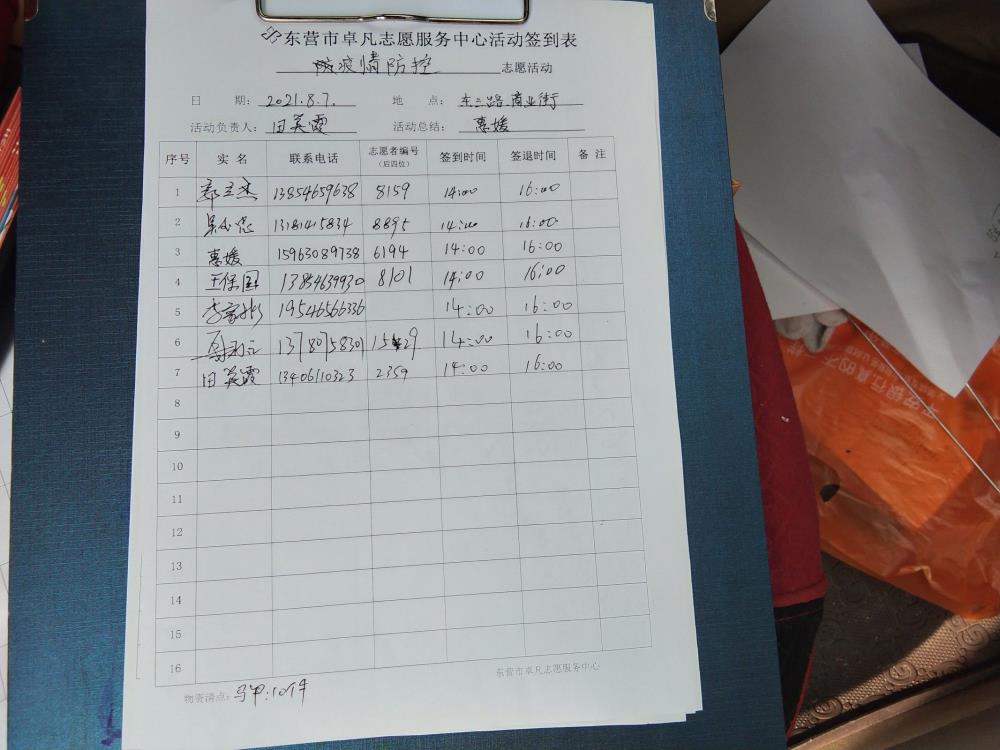 东营市卓凡志愿服务中心活动签到表
疫情防控 志愿活动
日 期: 2021.8.7. 地 点: 东三路商业街
活动负责人: 田英霞 活动总结: 惠媛
序号 实名 联系电话 志愿者编号(后四位) 签到时间 签退时间 备注
1 郭立杰 13854659638 8159 14:00 16:00
2 13181415834 8895 14:00 16:00
3 惠媛 15963089738 6194 14:00 16:00
4 王保国 13854639930 8101 14:00 16:00
5 19546566336 14:00 16:00
6 14:00 16:00
7 田英霞 13406110323 2359 14:00 16:00
8
9
10
11
12
13
14
15
16
物资清点: 马甲:10件
东营市卓凡志愿服务中心